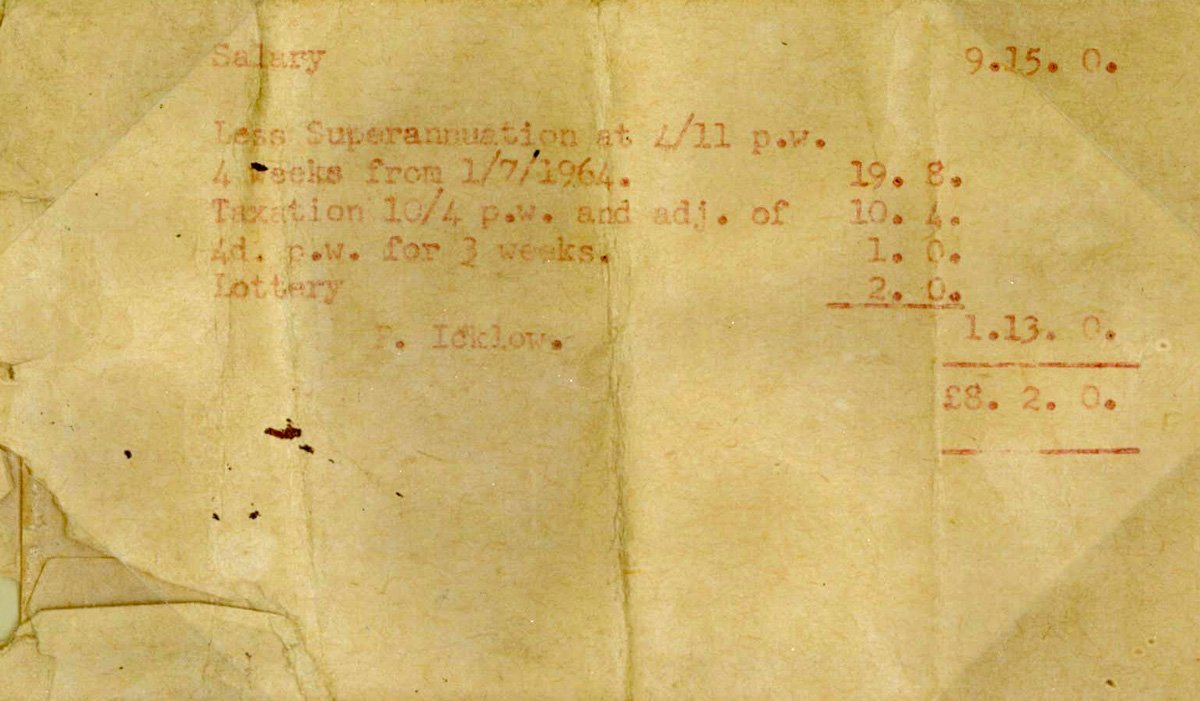 Salary 9.15. 0.
Less Superannuation at 4/11 p.w.
4 weeks from 1/7/1964. 19. 8.
Taxation 10/4 p.w. and adj. of 10. 4.
4d. p.w. for 3 weeks. 1. 0.
Lottery 2. 0.
P. Icklow. 1.13. 0.
£8. 2. 0.